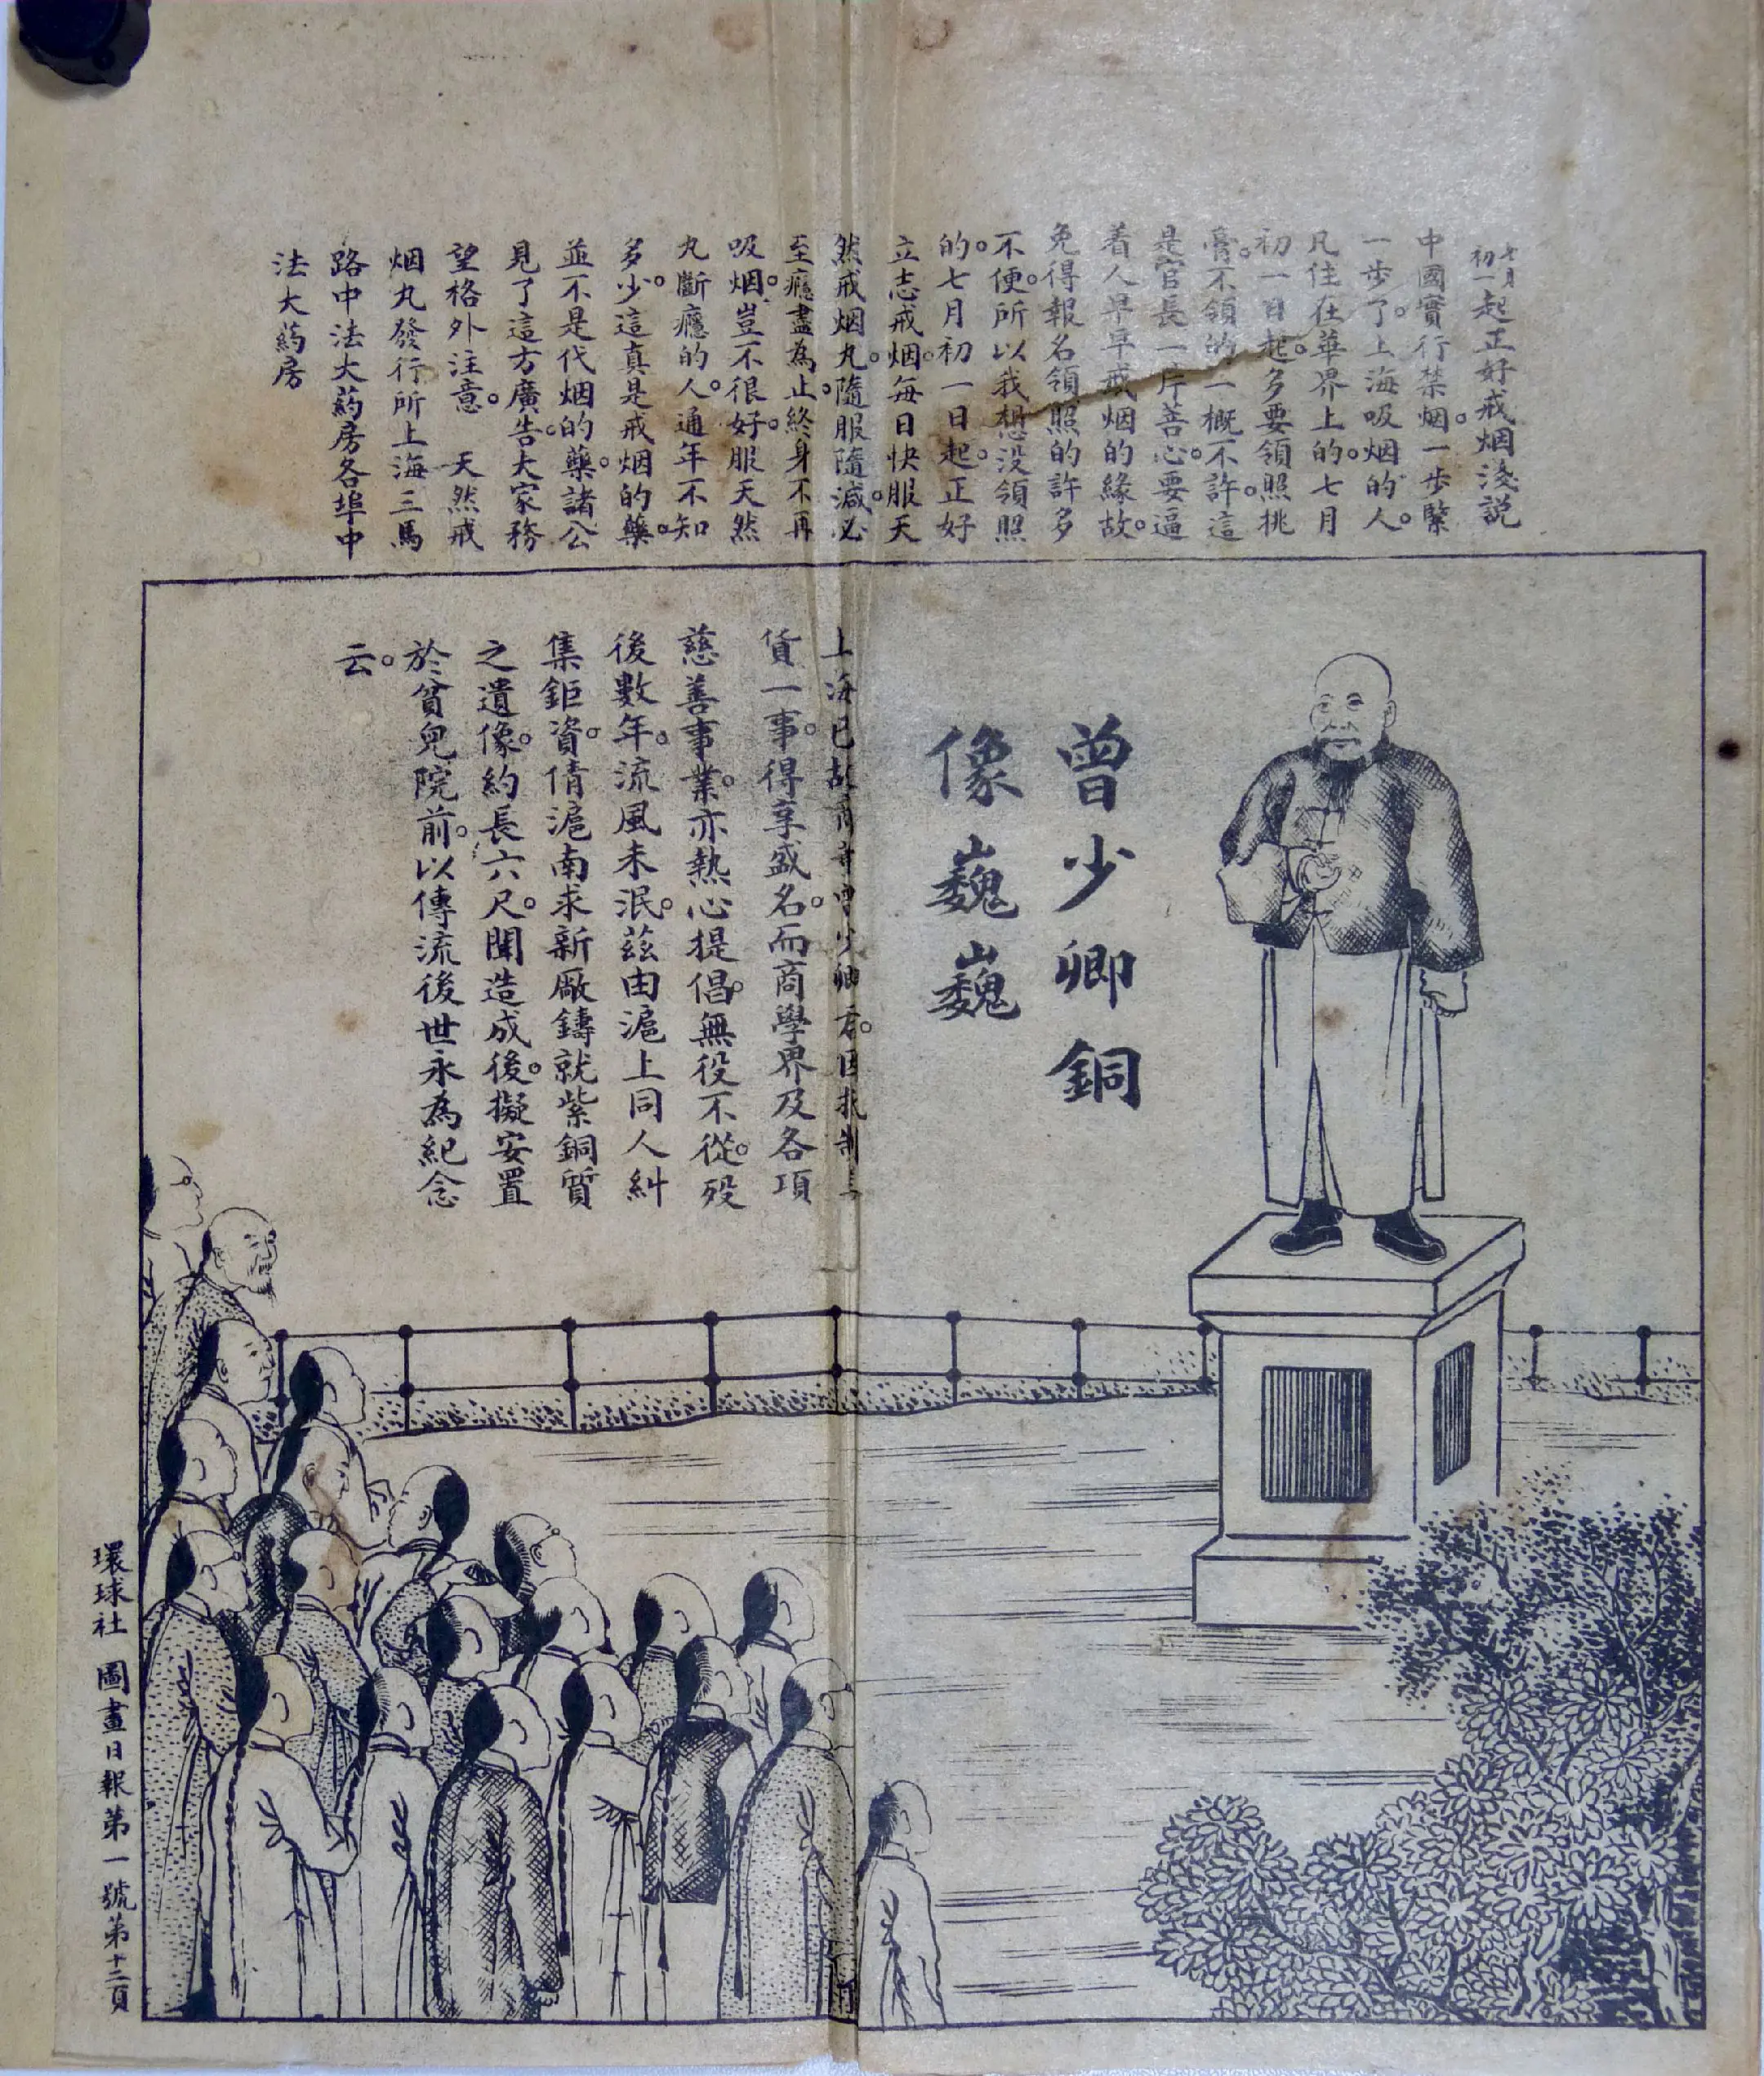 七月初一起正好戒烟淺説
中國實行禁烟。一步緊
一步了。上海吸烟的人。
凡住在華界上的。七月
初一日起。多要領照挑
膏。不領的一概不許。這
是官長一片善心。要逼
着人早早戒烟的緣故。
免得報名領照的許多
不便。所以我想没領照
的。七月初一日起。正好
立志戒烟。每日快服天
然戒烟丸。隨服隨減。必
至癮盡為止。終身不再
吸烟。豈不很好。服天然
丸斷癮的人。通年不知
多少。這真是戒烟的藥。
並不是代烟的藥。諸公
見了這方廣告。大家務
望格外注意。 天然戒
烟丸發行所上海三馬
路中法大葯房各埠中
法大葯房
曾少卿銅
像巍巍
上海已故商董曾少卿君。因抵制
貨一事。得享盛名。而商學界及各項
慈善事業。亦熱心提倡。無役不從。歿
後數年。流風未泯。茲由滬上同人糾
集鉅資。倩滬南求新廠鑄就紫銅質
之遺像。約長六尺。聞造成後。擬安置
於貧兒院前。以傳流後世永為紀念
云。
環球社 圖畫日報第一號第十二頁